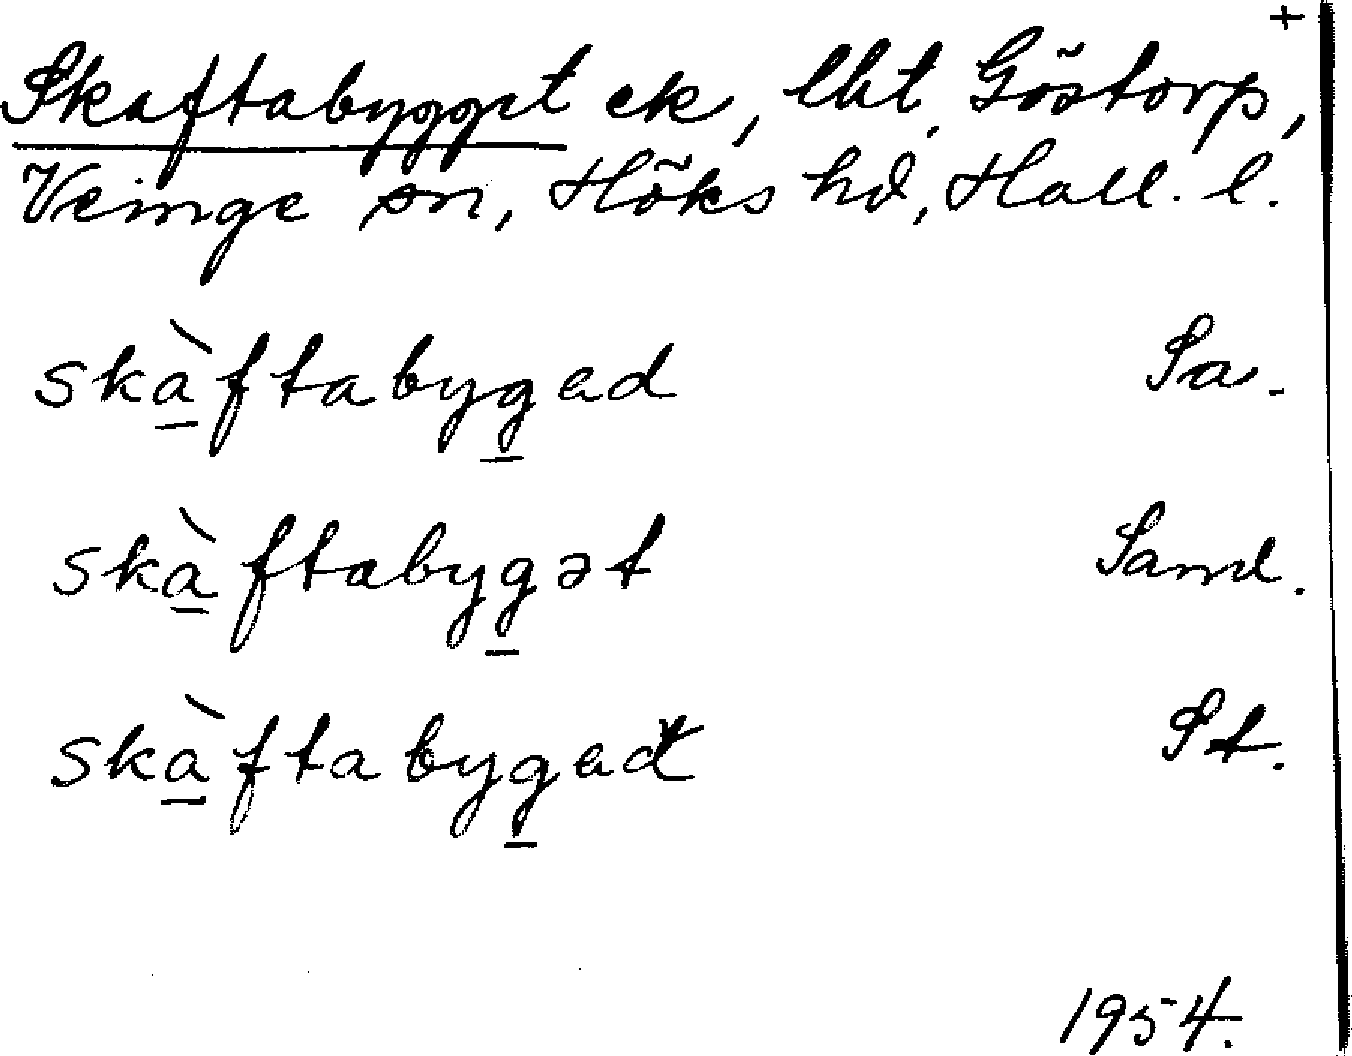 +
Skaftabygget ek, lht. Göstorp,
Veinge sn, Höks hd, Hall. l.
skàftabygad Sa.
skàftabygət Sand.
skàftabygad St.
1954.